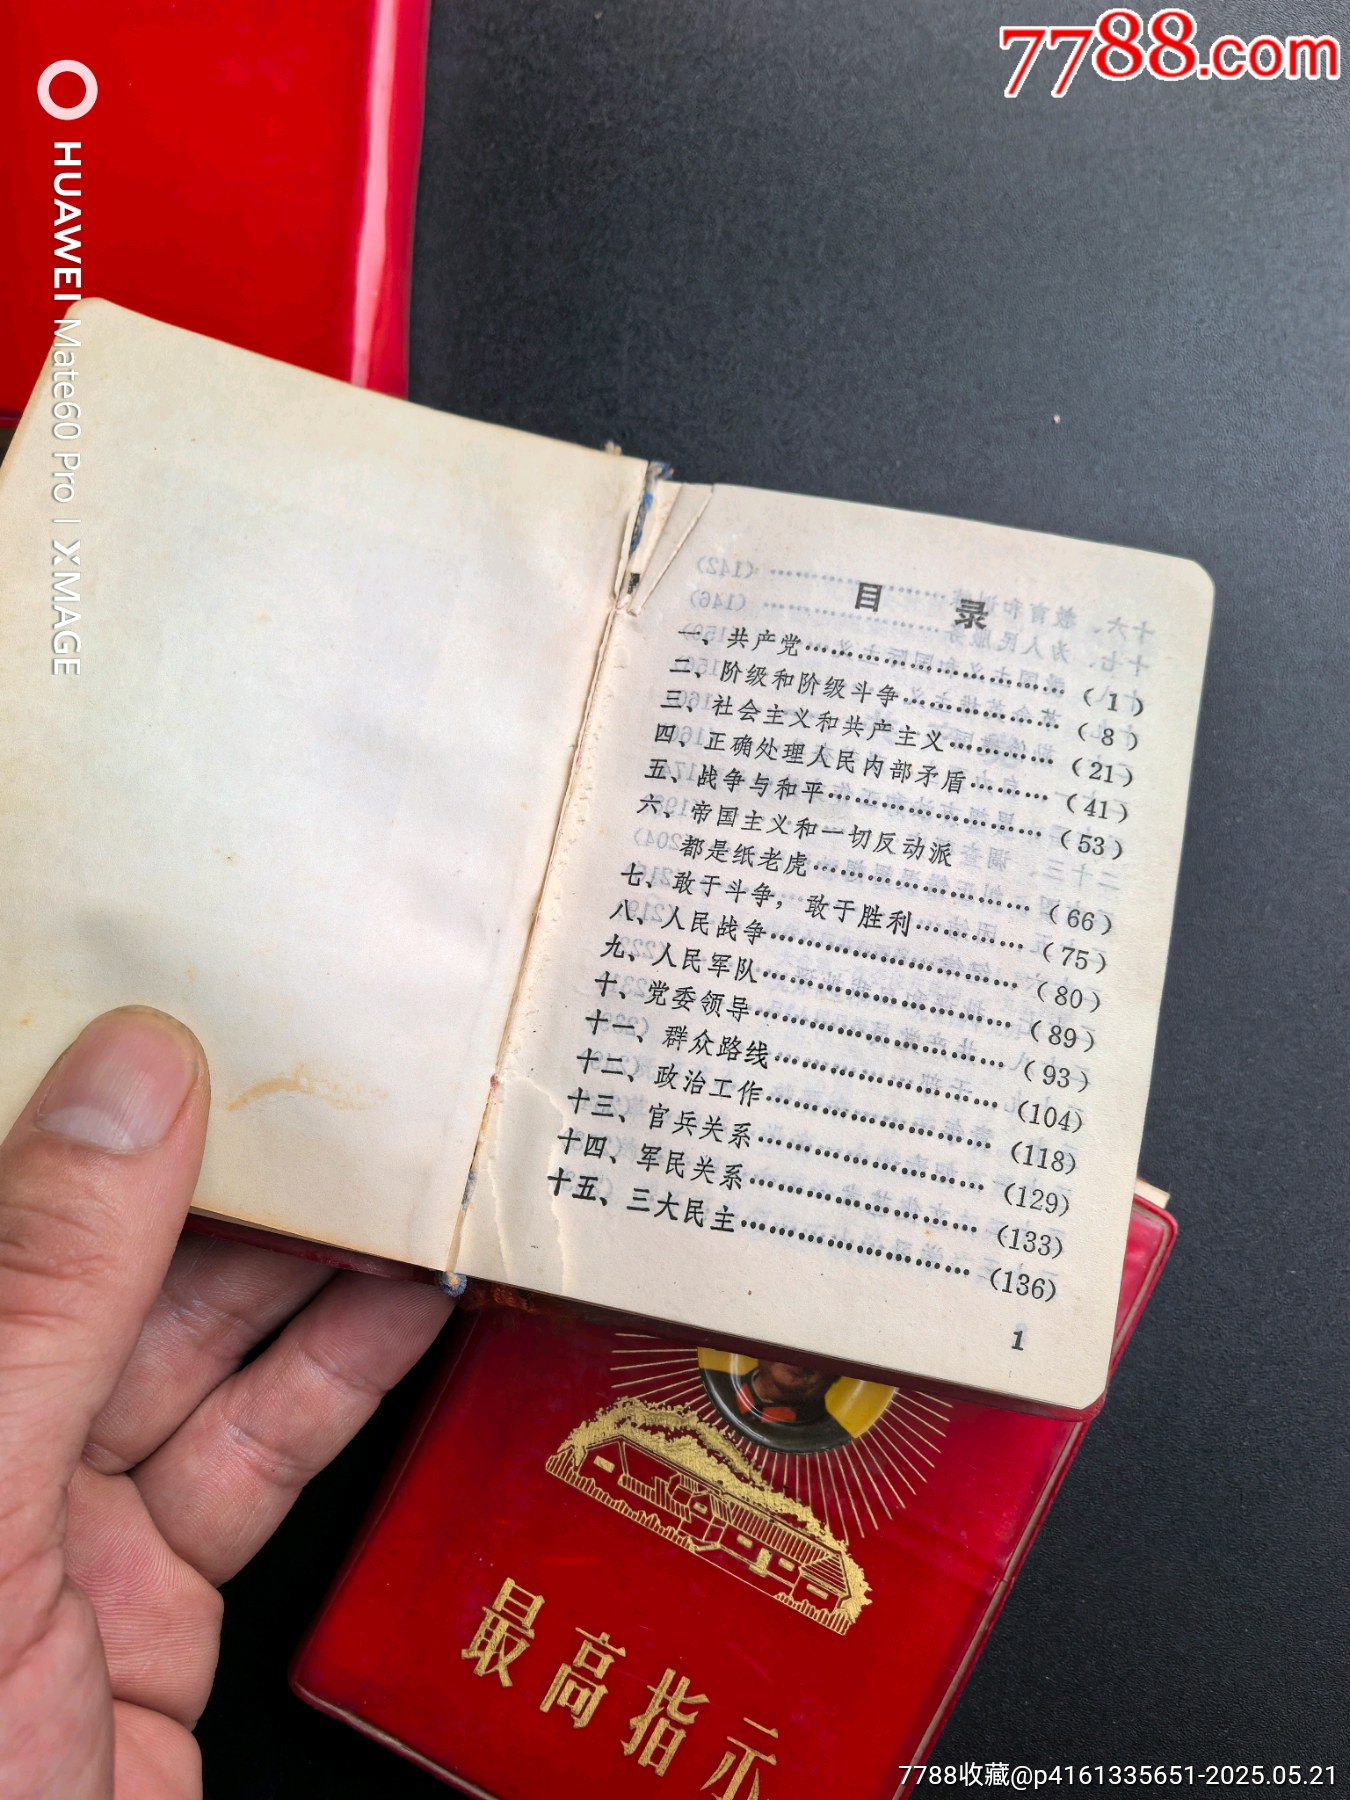 7788.com
HUAWEI Mate60 Pro | XMAGE
目 录
一、共产党……………………(1)
二、阶级和阶级斗争……………(8)
三、社会主义和共产主义…………(21)
四、正确处理人民内部矛盾………(41)
五、战争与和平…………………(53)
六、帝国主义和一切反动派
都是纸老虎…………………(66)
七、敢于斗争，敢于胜利…………(75)
八、人民战争……………………(80)
九、人民军队……………………(89)
十、党委领导……………………(93)
十一、群众路线…………………(104)
十二、政治工作…………………(118)
十三、官兵关系…………………(129)
十四、军民关系…………………(133)
十五、三大民主…………………(136)
1
最高指示
7788收藏@p4161335651-2025.05.21